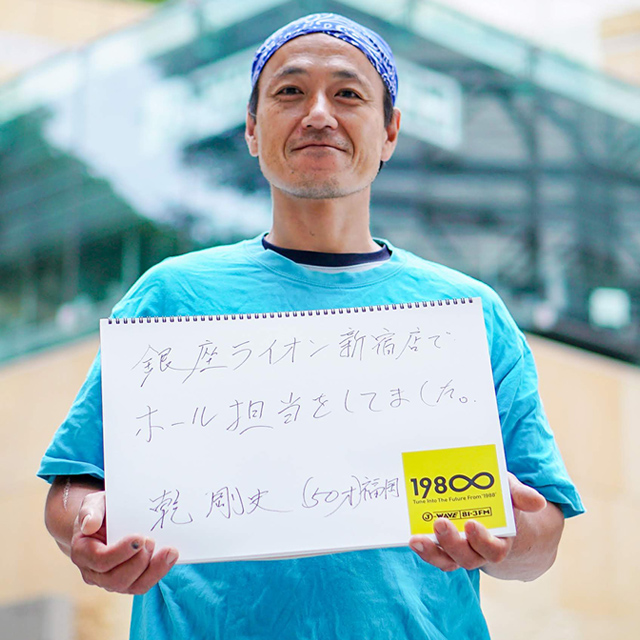 銀座ライオン新宿店で
ホール担当をしてました。
乾 剛史 (50才)福岡
1988
Tune Into The Future From '1988'
J-WAVE 81.3FM